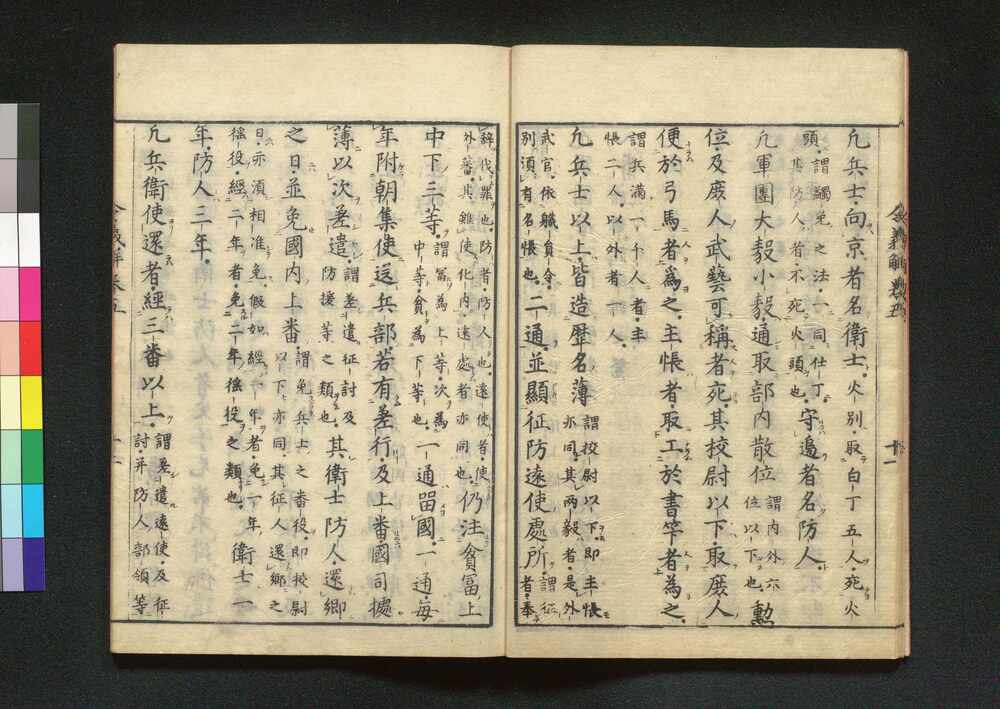 令義解卷五
十一
凢兵士向京者名衛士火別取白丁五人死火
頭謂蠲免之法一同仕丁
其防人者不死火頭也守邊者名防人
凢軍團大毅小毅通取部內散位謂内外六
位以下也勲
位及庶人武藝可稱者死其校尉以下取庶人
便於弓馬者爲之主帳者取工於書筭者爲之
謂兵滿一千人者主
帳二人以外者一人
凢兵士以上皆造歷名薄謂校尉以下即主帳
亦同其兩毅者是外
武官依軄負令
別須有名帳也二通並顯征防遠使處所謂征
者奉
辤伐罪也防者防人也遠使者使
外蕃其雖使化内遠處者亦同也仍注貧冨上
中下三等謂冨爲上等次爲
中等貧爲下等也一通畱國一通毎
年附朝集使送兵部若有差行及上番國司據
薄以次差遣謂差遣征討及
防援等之類也其衛士防人還卿
之日並免國内上番謂免兵士之番役即挍尉
以下亦同其征人還鄕之
日亦湏相准免假如經一年者免一年
徭役經二年者免二年徭役之類也衛士一
年防人三年
凢兵衛使還者經三番以上謂差遣遠使及征
討并防人部領等
令義解卷五
十一